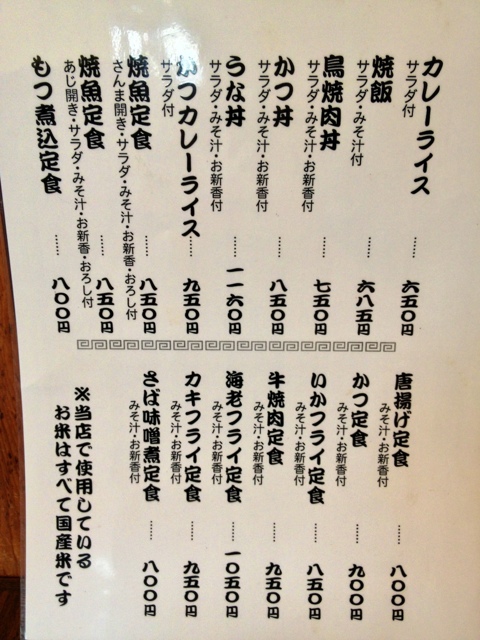 カレーライス
サラダ付
六五〇円
焼飯
サラダ・みそ汁付
六八五円
鳥焼肉丼
サラダ・みそ汁・お新香付
七五〇円
かつ丼
サラダ・みそ汁・お新香付
八五〇円
うな丼
サラダ・みそ汁・お新香付
一一六〇円
かつカレーライス
サラダ付
九五〇円
焼魚定食
さんま開き・サラダ・みそ汁・お新香・おろし付
八五〇円
焼魚定食
あじ開き・サラダ・みそ汁・お新香・おろし付
八五〇円
もつ煮込定食
八〇〇円
唐揚げ定食
みそ汁・お新香付
八〇〇円
かつ定食
みそ汁・お新香付
九〇〇円
いかフライ定食
みそ汁・お新香付
八五〇円
牛焼肉定食
みそ汁・お新香付
九五〇円
海老フライ定食
みそ汁・お新香付
一〇五〇円
カキフライ定食
みそ汁・お新香付
九五〇円
さば味噌煮定食
みそ汁・お新香付
八〇〇円
※当店で使用している
お米はすべて国産米です